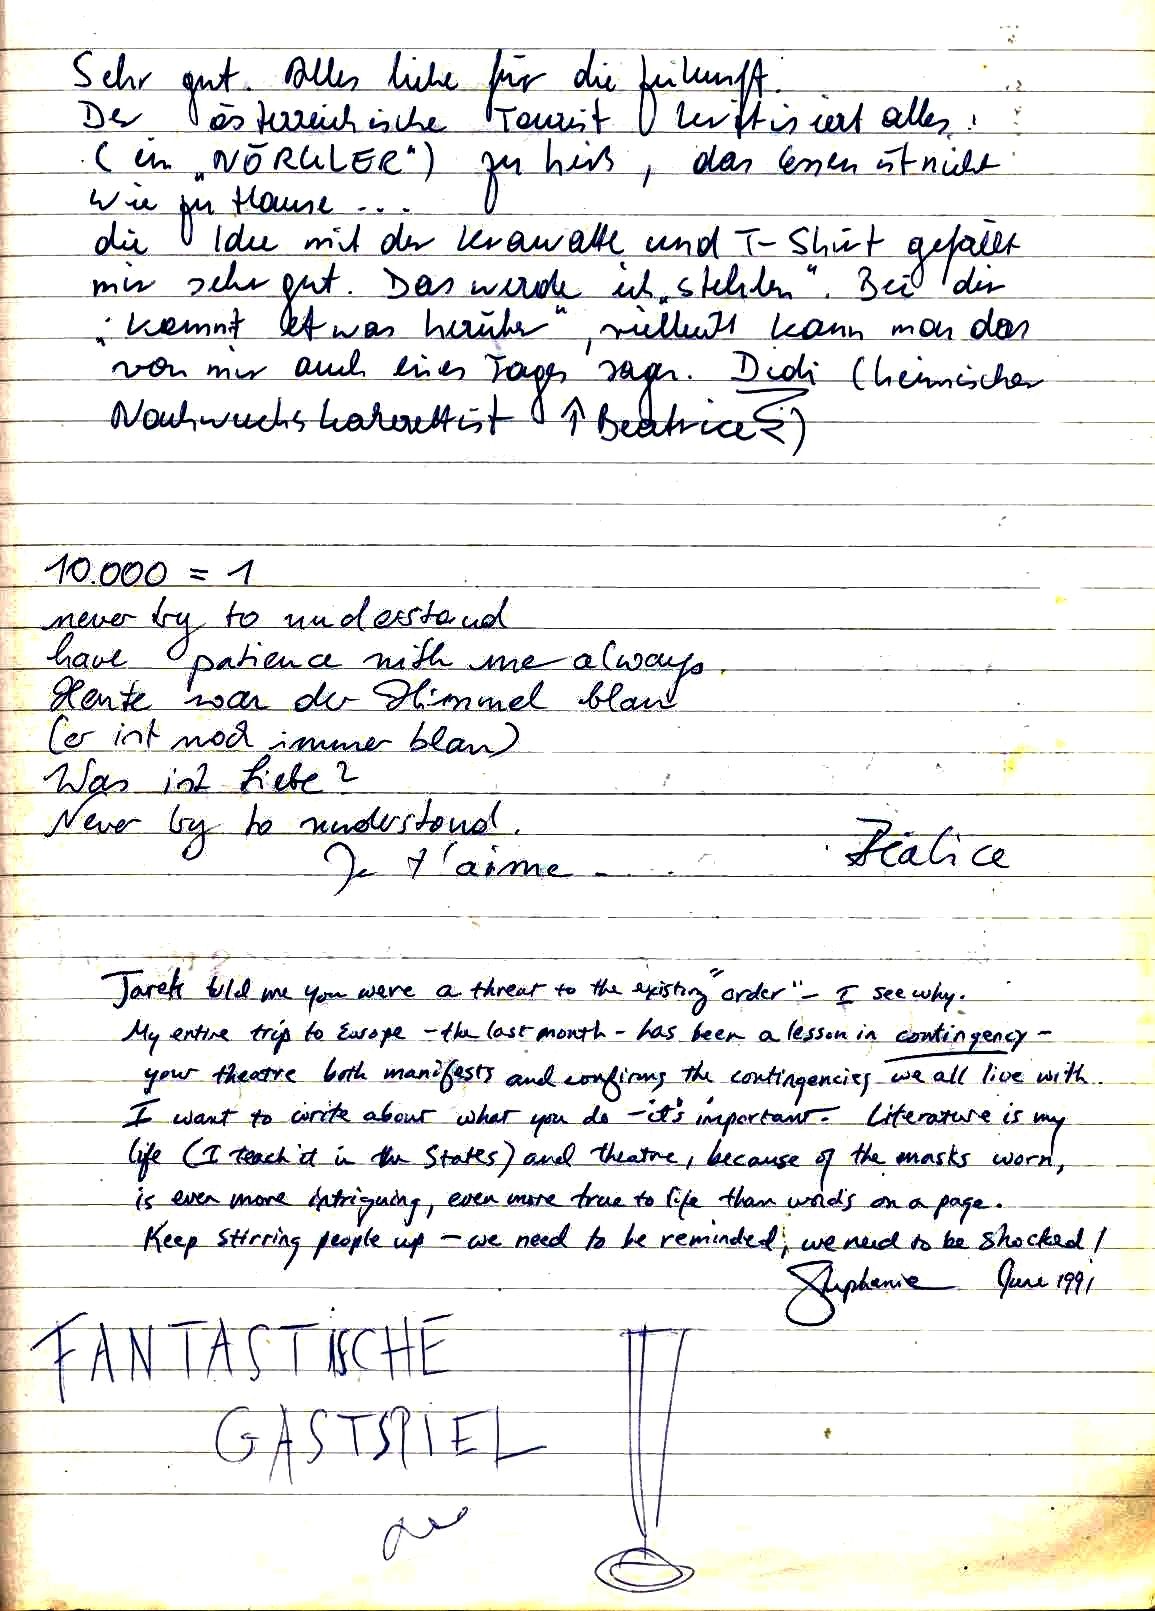 Sehr gut. Alles liebe für die Zukunft.
Der österreichische Tourist kritisiert alles:
(ein „NÖRGLER“) zu heiß, das Essen ist nicht
wie zu Hause ...
die Idee mit der Krawatte und T-Shirt gefällt
mir sehr gut. Das werde ich „stehlen“. Bei dir
„kommt etwas herüber“, vielleicht kann man das
von mir auch eines Tages sagen. Didi (heimischer
Nachwuchskabarettist ↑ Beatrice)
10.000 = 1
never try to understand
have patience with me always.
Heute war der Himmel blau
(er ist noch immer blau)
Was ist Liebe?
Never try to understand.
Je t'aime
Béatice
Jarek told me you were a threat to the existing "order" – I see why.
My entire trip to Europe – the last month – has been a lesson in contingency –
your theatre both manifests and confirms the contingencies we all live with.
I want to write about what you do – it's important. Literature is my
life (I teach it in the States) and theatre, because of the masks worn,
is even more intriguing, even more true to life than words on a page.
Keep stirring people up – we need to be reminded, we need to be shocked!
Stephanie June 1991
FANTASTISCHE
GASTSPIEL !